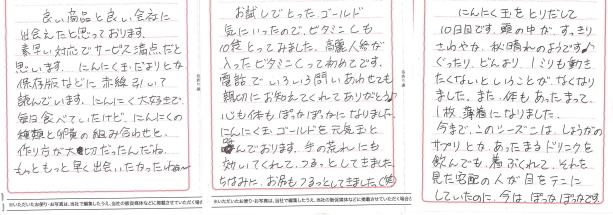 良い商品と良い会社に
出会えたと思っております。
素早い対応でサービス満点だと
思います。にんにく玉だよりとか
保存版などに赤線引いて
読んでいます。にんにく大好きで、
毎日食べていたけど、にんにくの
種類と卵黄の組み合わせと、
作り方が大切だったんだね。
もっともっと早く出会いたかったわぁ〜
お試しでとったゴールド
気にいったので、ビタミンCも
10袋とってみました。高麗人参が
入ったビタミンCって初めてです。
電話でいろいろ問い合わせても
親切にお知えてくれてありがとう♪
心も体もぽっかぽかになりました。
にんにく玉ゴールドを元気玉と
呼んでおります。手の荒れにも
効いてくれて、つるっとしてきました。
ちなみに、お尻もつるっとしてきました(笑)
にんにく玉をとりだして
10日目です。頭の中が、すっきり
さわやか、秋晴れのようです♪
ぐったり、どんより、1ミリも動き
たくないということが、なくなり
ました。また、体もあったまって、
1枚、薄着になりました。
今まで、このシーズンは、しょうがの
サプリとか、あったまるドリンクを
飲んでも、着ぶくれて、それを
見た宅配の人が目をテンに
していたのに、今は、ぽっかぽかです。
※いただいたお便り・お写真は、当社で編集したうえ、当社の販促媒体などに掲載させていただく場合
※いただいたお便り・お写真は、当社で編集したうえ、当社の販促媒体などに掲載させていただく場合